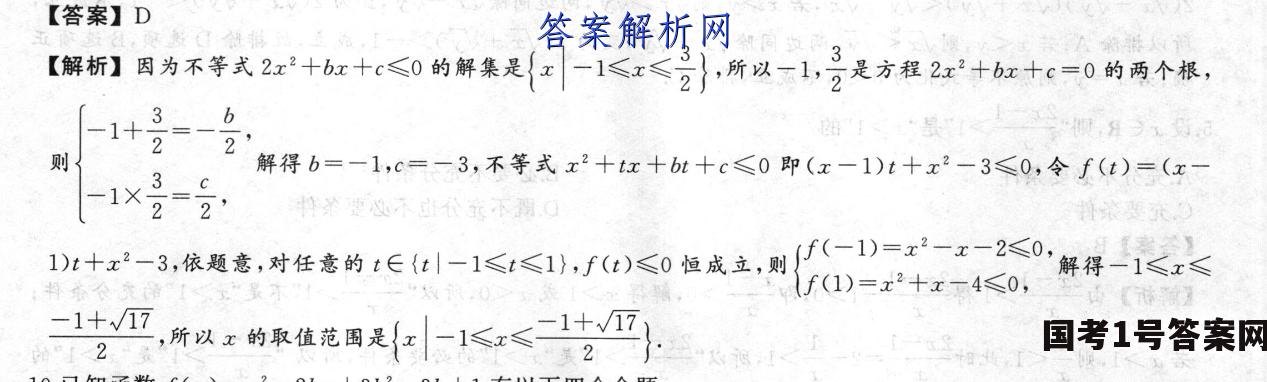 【答案】D
答案解析网
【解析】因为不等式 2x²+bx+c≤0 的解集是{x|-1≤x≤3/2},所以-1,3/2是方程 2x²+bx+c=0 的两个根,
则{-1+3/2=-b/2,
-1×3/2=c/2,
解得 b=-1,c=-3,不等式 x²+tx+bt+c≤0 即(x-1)t+x²-3≤0,令 f(t)=(x-
1)t+x²-3,依题意,对任意的 t∈{t|-1≤t≤1},f(t)≤0 恒成立,则{f(-1)=x²-x-2≤0,
f(1)=x²+x-4≤0,
解得-1≤x≤
(-1+√17)/2,所以 x 的取值范围是{x|-1≤x≤(-1+√17)/2}.
国考1号答案网